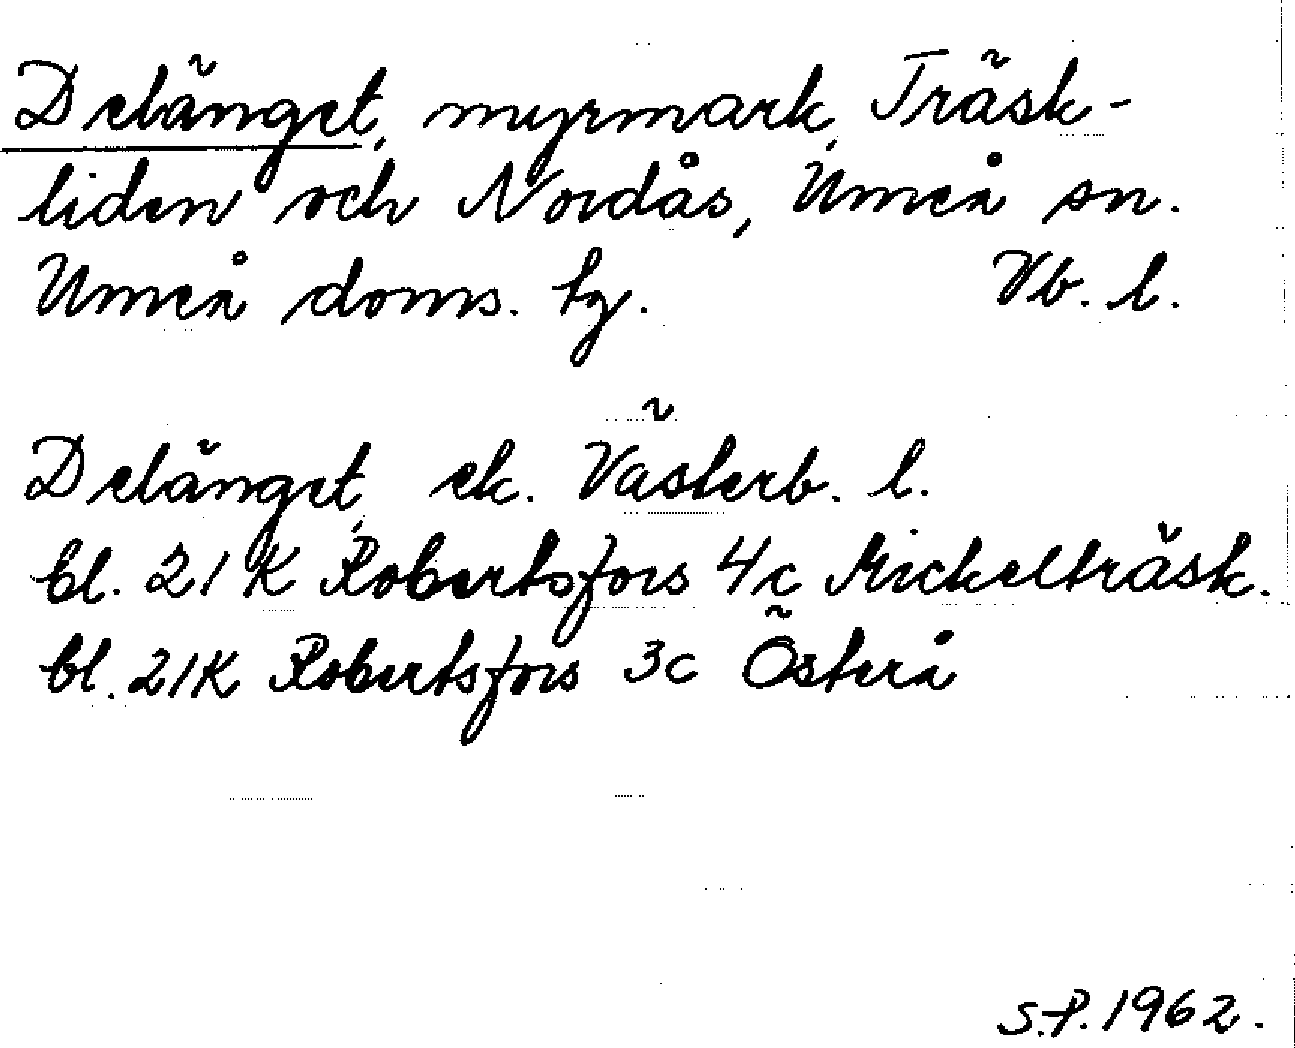 Delänget, myrmark, Träsk-
liden och Nordås, Umeå sn.
Umeå doms. hg. Vb. l.
Delänget, ek. Västerb. l.
bl. 21 K Robertsfors 4c Mickelträsk.
bl. 21K Robertsfors 3c Österå
S.P. 1962.